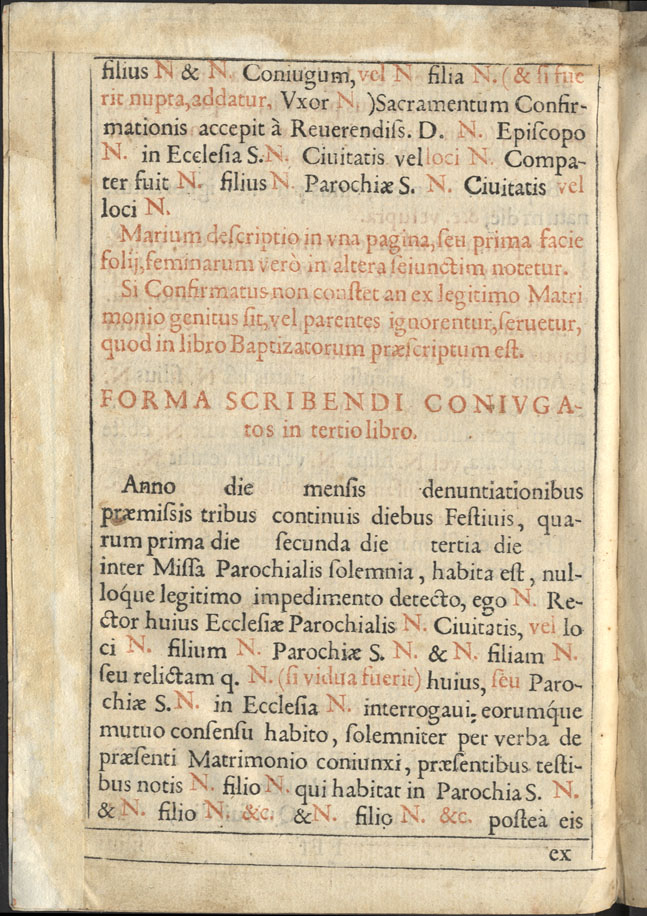 filius N & N. Coniugum, vel N filia N. (& si fue
rit nupta, addatur, Vxor N. )Sacramentum Confir-
mationis accepit à Reuerendiss. D. N. Episcopo
N. in Ecclesia S. N. Ciuitatis vel loci N. Compa-
ter fuit N. filius N Parochiæ S. N. Ciuitatis vel
loci N.
Marium descriptio in vna pagina, seu prima facie
folij, feminarum verò in altera seiunctim notetur.
Si Confirmatus non constet an ex legitimo Matri
monio genitus sit, vel parentes ignorentur, seruetur,
quod in libro Baptizatorum præscriptum est.
FORMA SCRIBENDI CONIVGA-
tos in tertio libro.
Anno die mensis denuntiationibus
præmissis tribus continuis diebus Festiuis, qua-
rum prima die secunda die tertia die
inter Missa Parochialis solemnia, habita est, nul-
loq́ue legitimo impedimento detecto, ego N. Re-
ctor huius Ecclesiæ Parochialis N. Ciuitatis, vel lo
ci N. filium N. Parochiæ S. N. & N. filiam N.
seu relictam q. N. (si vidua fuerit) huius, seu Paro-
chiæ S. N. in Ecclesia N. interrogaui, eorumq́ue
mutuo consensu habito, solemniter per verba de
præsenti Matrimonio coniunxi, præsentibus testi-
bus notis N. filio N. qui habitat in Parochia S. N.
& N. filio N. &c. & N. filio N. &c. posteà eis
ex